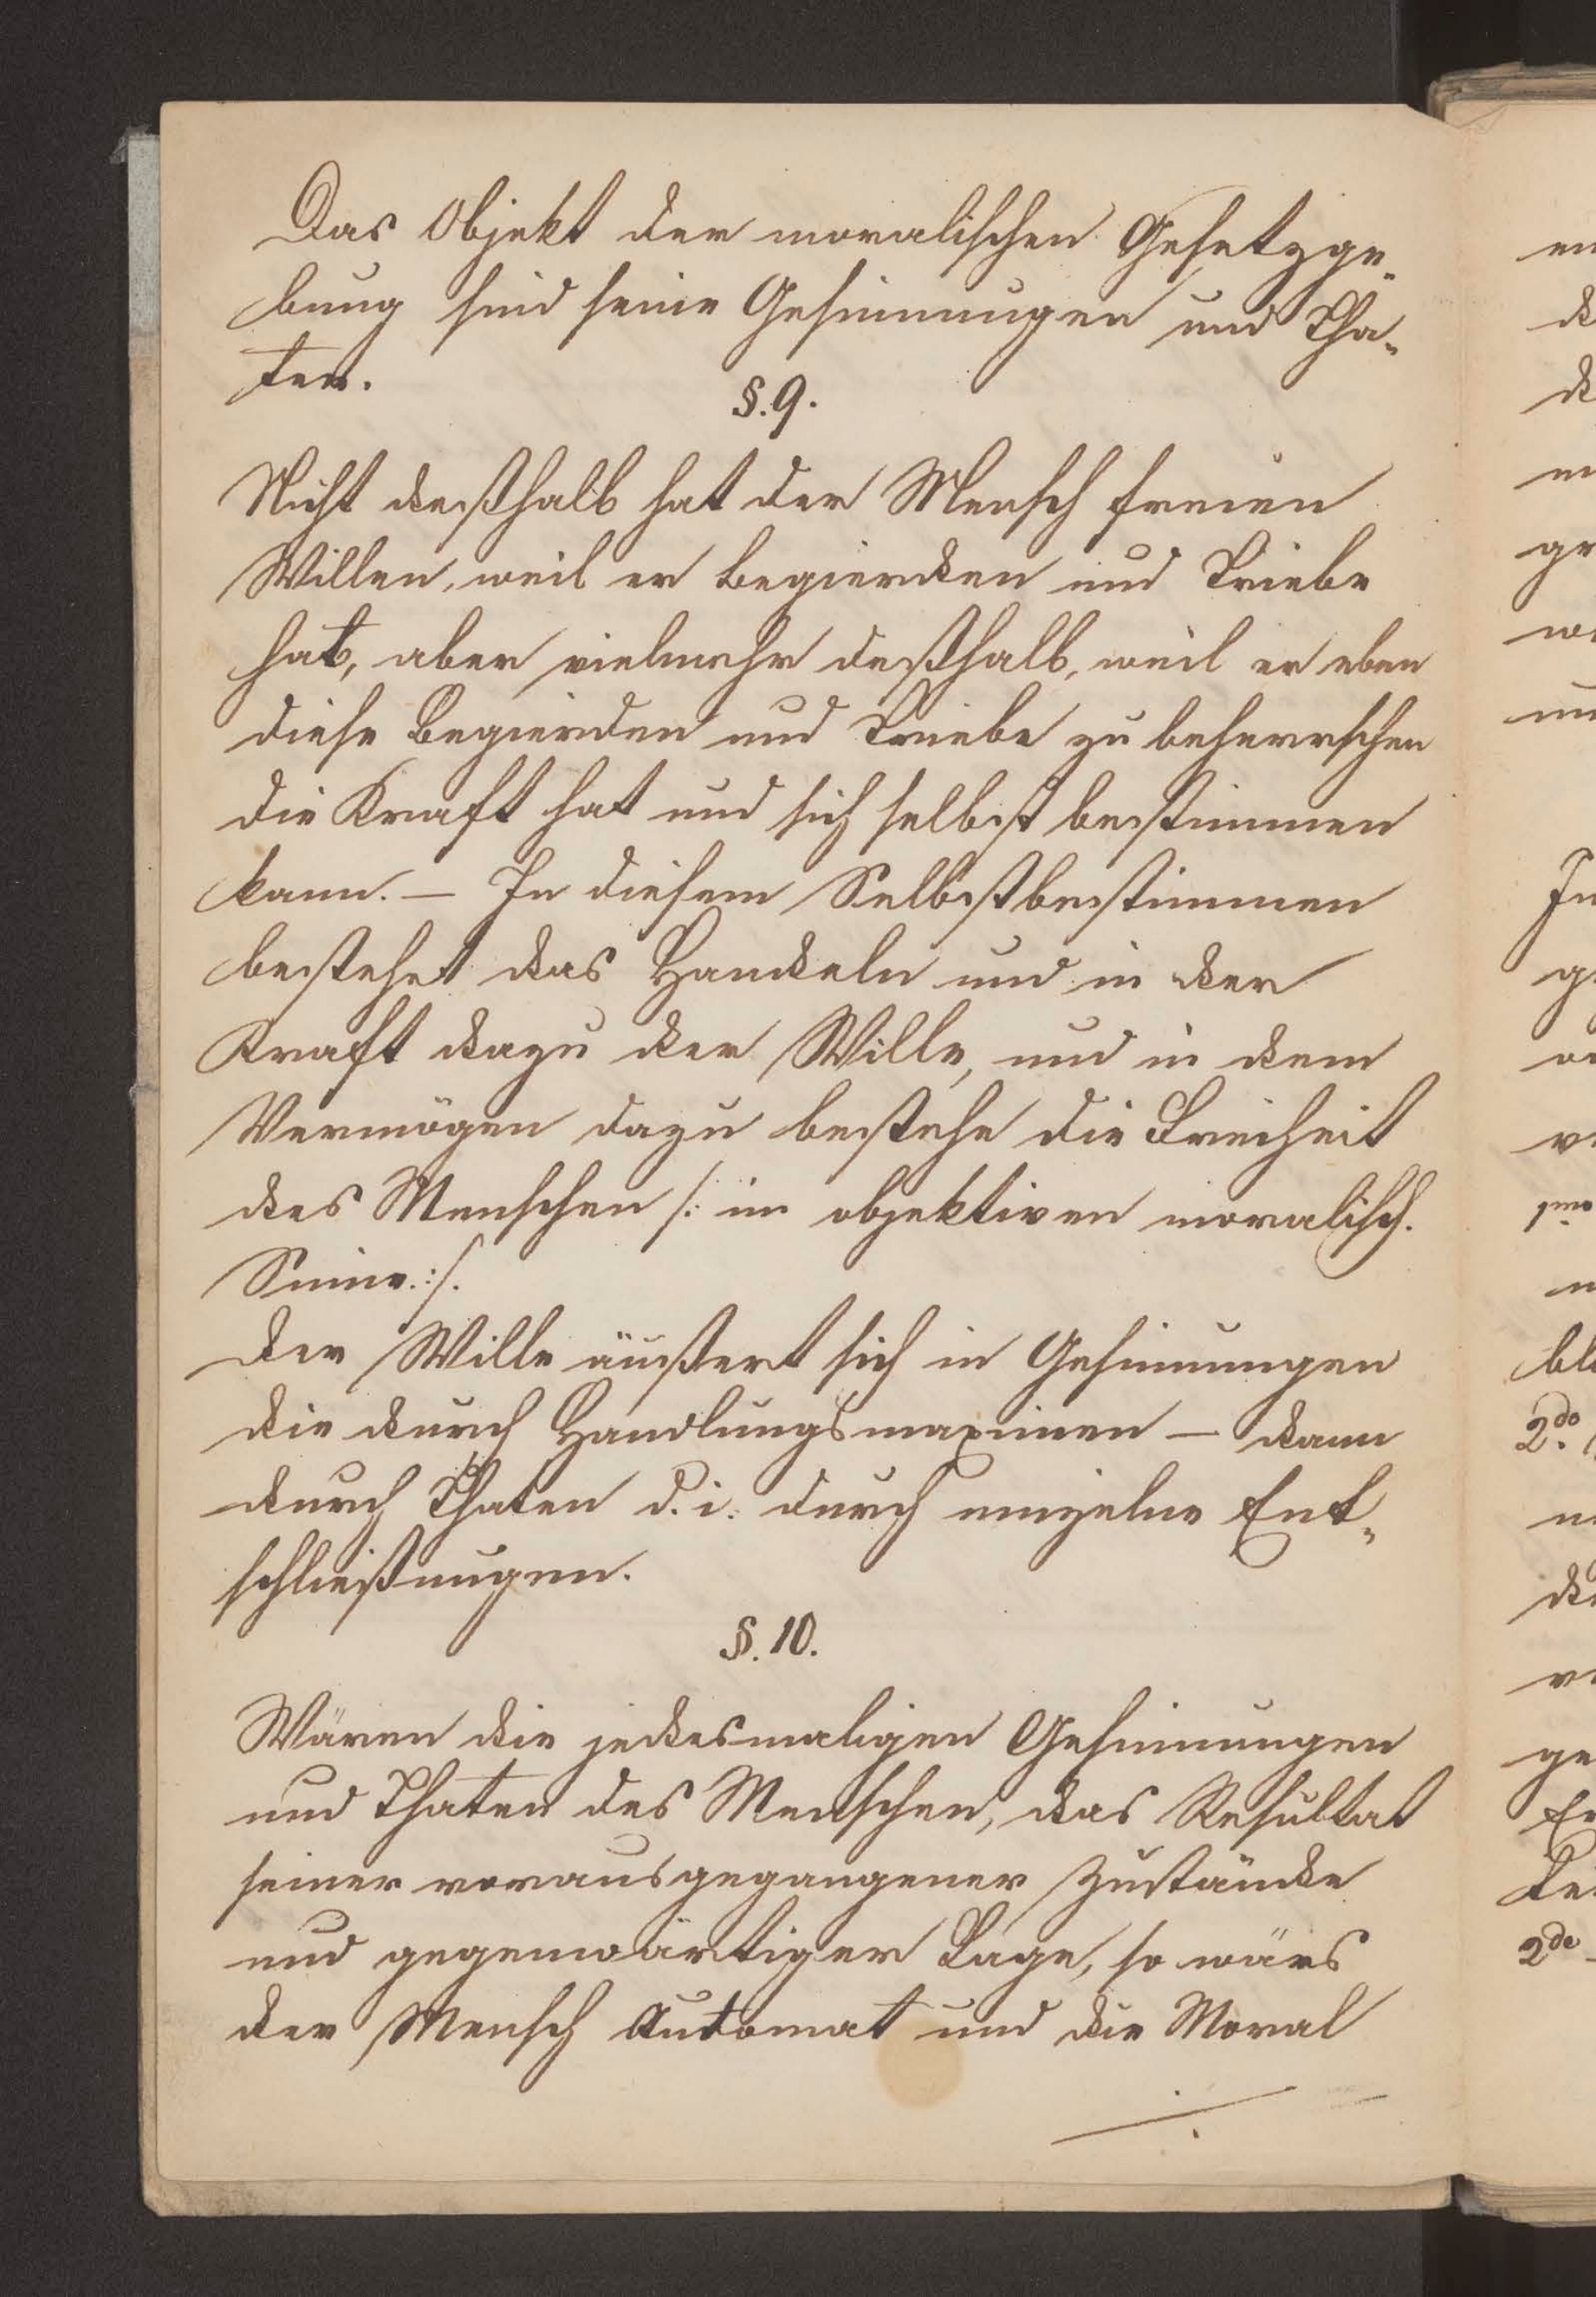 Das Objekt der moralischen Gesetzge-
bung sind seine Gesinnungen und Tha-
ten.
§. 9.
Nicht deßhalb hat der Mensch freien
Willen, weil er Begierden und Triebe
hat, aber vielmehr deßhalb, weil er eben
diese Begierden und Triebe zu beherrschen
die Kraft hat und sich selbst bestimmen
kann. — In diesem Selbstbestimmen
bestehet das Handeln und in der
Kraft dazu der Wille, und in dem
Vermögen dazu bestehe die Freiheit
des Menschen /: im objektiven moralisch.
Sinne :/.
Der Wille äußert sich in Gesinnungen
die durch Handlungsmaximen — dann
durch Thaten d. i. durch einzelne Ent-
schließungen.
§. 10.
Wären die jedesmaligen Gesinnungen
und Thaten des Menschen, das Resultat
seiner vorausgegangener Zustände
und gegenwärtiger Lage, so wäre
der Mensch Automat und die Moral